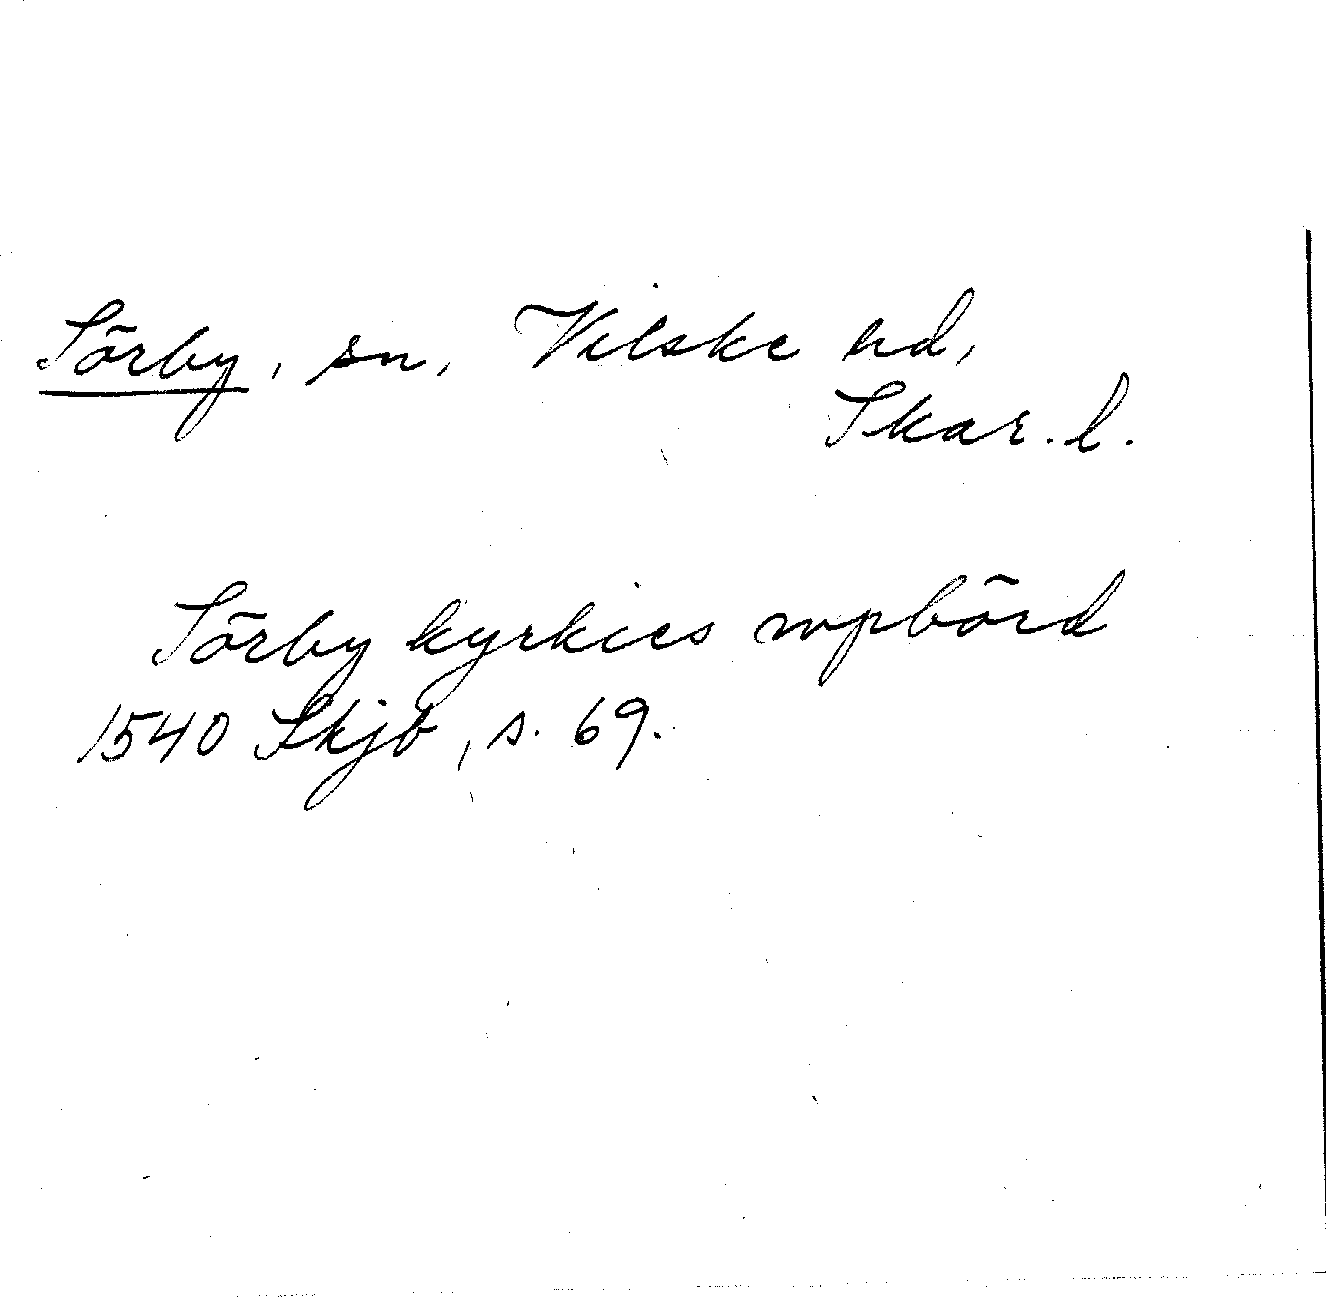 Sörby, sn, Vilske hd,
Skar. l.
Sörby kyrkies wpbörd
1540 Skjb, s. 69.